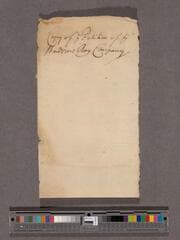 Copy of ye Petition of ye
Hudsons Bay Company